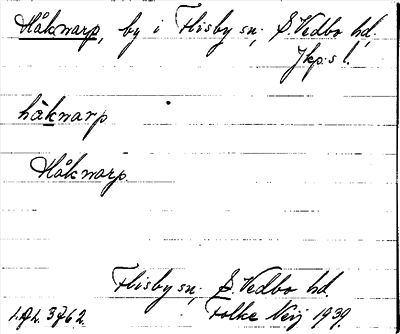 Håknarp, by i Flisby sn, S. Vedbo hd,
Jkp:s l.
håknarp
Håknarp
Flisby sn, S. Vedbo hd.
Folke 1939.